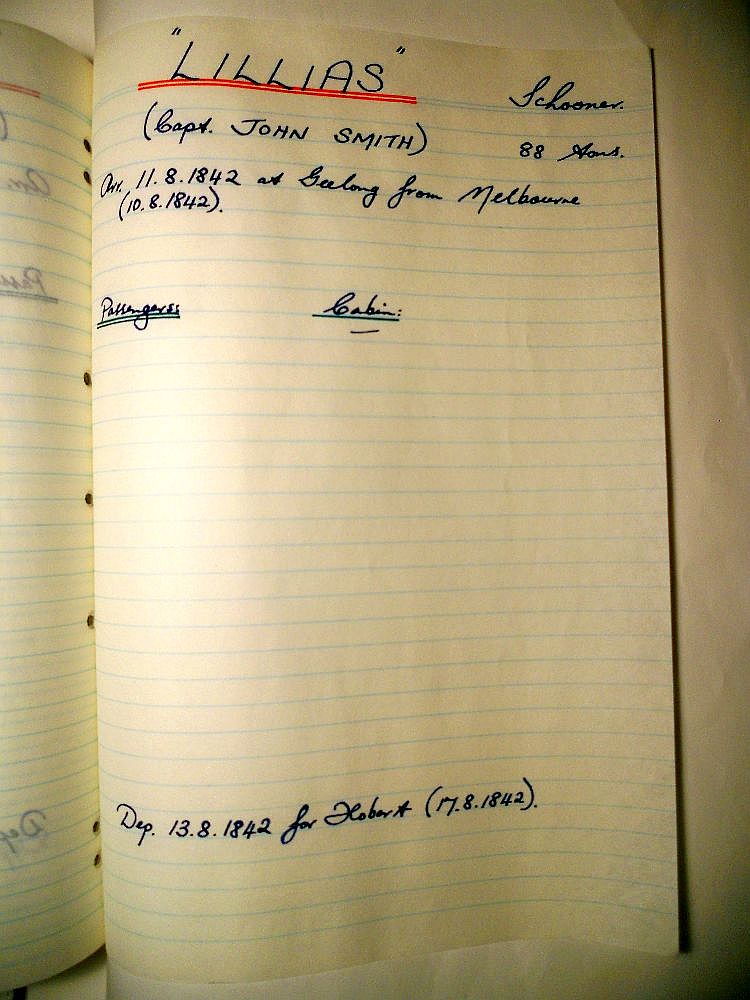 "LILLIAS"
Schooner.
(Capt. JOHN SMITH)
88 tons.
Arr. 11.8.1842 at Geelong from Melbourne
(10.8.1842).
Passengers:
Cabin:
—
Dep. 13.8.1842 for Hobart (17.8.1842).